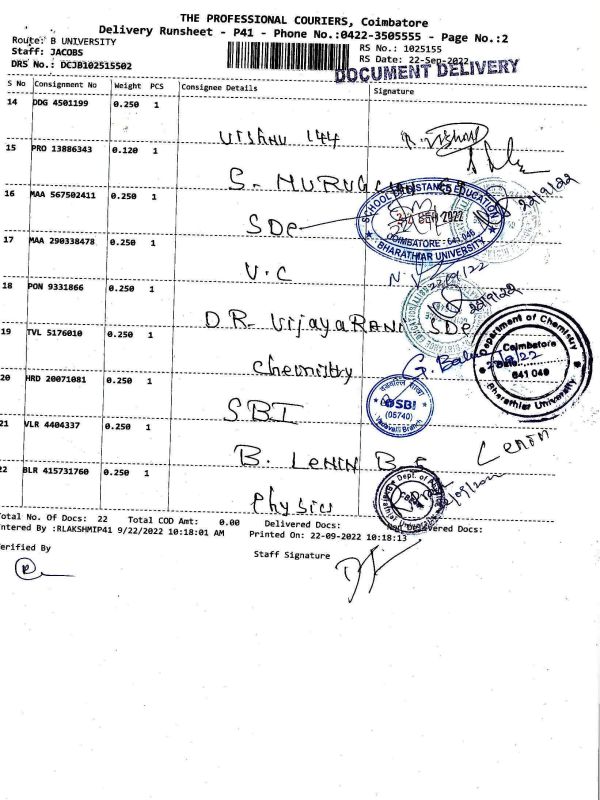 THE PROFESSIONAL COURIERS, Coimbatore
Delivery Runsheet - P41 - Phone No.:0422-3505555 - Page No.:2
Route: B UNIVERSITY
Staff: JACOBS
DRS No.: DCJB102515502
RS No.: 1025155
RS Date: 22-Sep-2022
DOCUMENT DELIVERY
S No Consignment No Weight PCS Consignee Details Signature
14 DDG 4501199 0.250 1
VISHNU 144
15 PRO 13886343 0.120 1
S. MURUGAN
16 MAA 567502411 0.250 1
SCHOOL OF DISTANCE EDUCATION
SEP 2022
COIMBATORE - 641 046
BHARATHIAR UNIVERSITY
22/9/22
SDe
17 MAA 290338478 0.250 1
V.C
22/9/22
18 PON 9331866 0.250 1
22/9/22
DR. VijayaRANI SDe
19 TVL 5176010 0.250 1
Department of Chemistry
Coimbatore
641 046
Bharathiar University
Chemistry
20 HRD 20071081 0.250 1
SBI
SBI
(05740)
Vadavalli Branch
21 VLR 4404337 0.250 1
B. LENIN
Lenin
22 BLR 415731760 0.250 1
Physics
Total No. Of Docs: 22 Total COD Amt: 0.00 Delivered Docs: Non Delivered Docs:
Entered By :RLAKSHMIP41 9/22/2022 10:18:01 AM Printed On: 22-09-2022 10:18:13
Verified By
Staff Signature